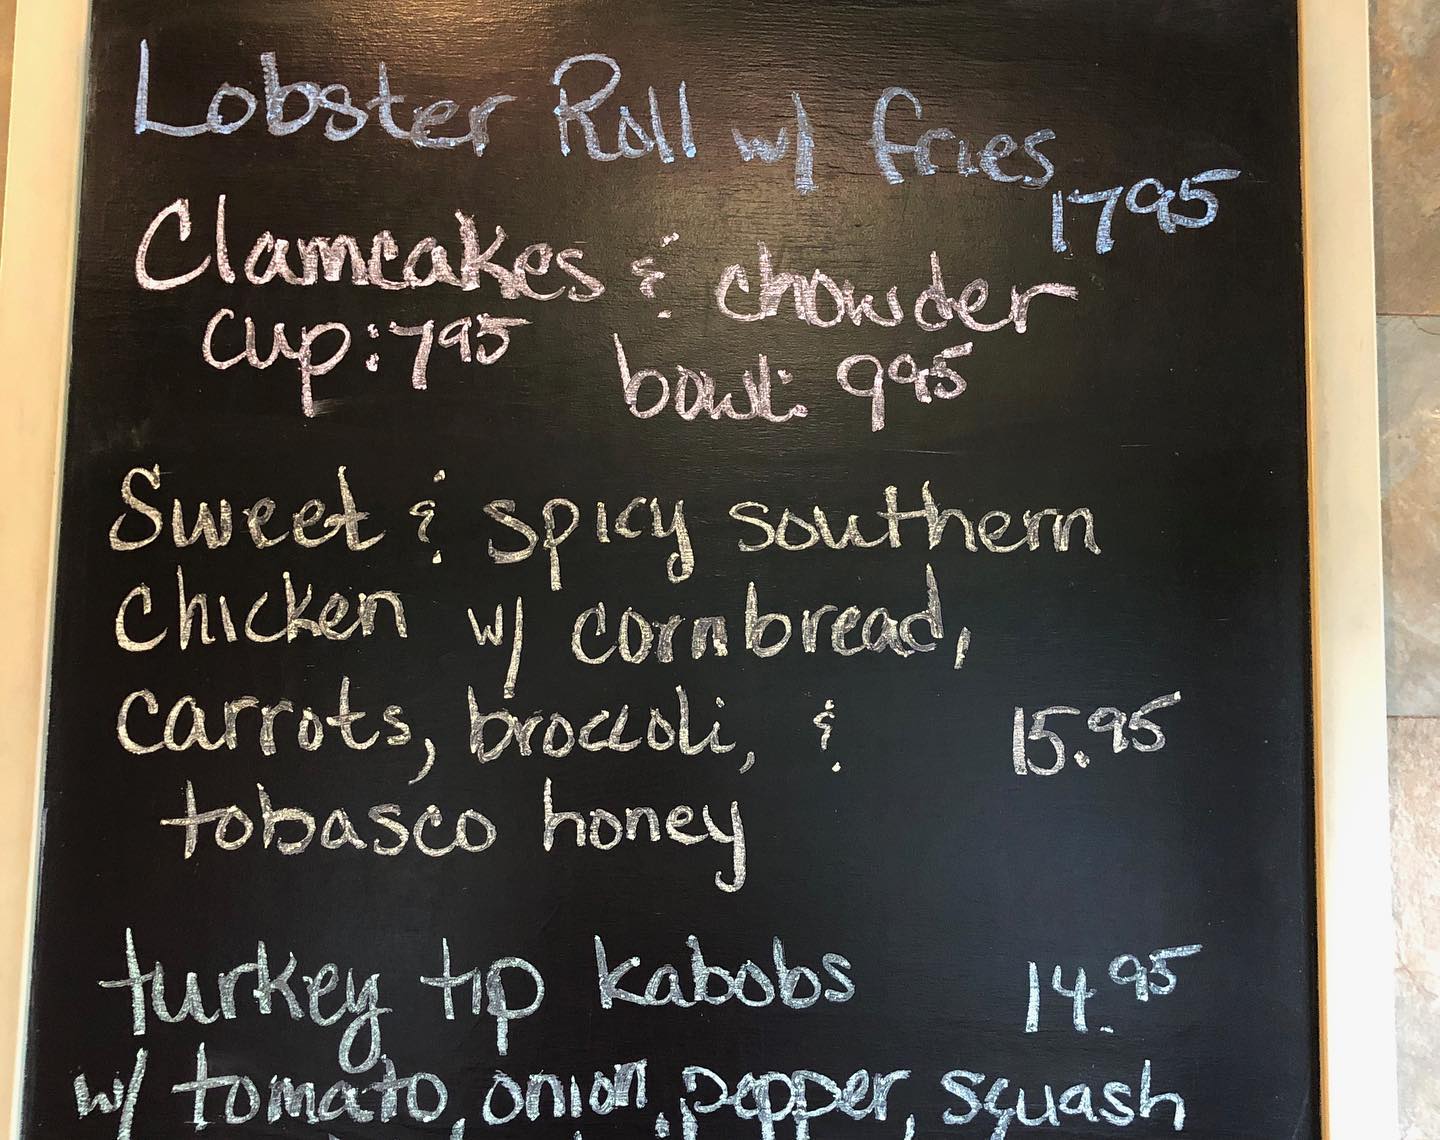 Lobster Roll w/ fries
1795
Clamcakes & chowder
cup: 795 bowl: 995
Sweet & spicy southern
chicken w/ cornbread,
carrots, broccoli, & 15.95
tobasco honey
turkey tip kabobs 14.95
w/ tomato, onion, pepper, squash